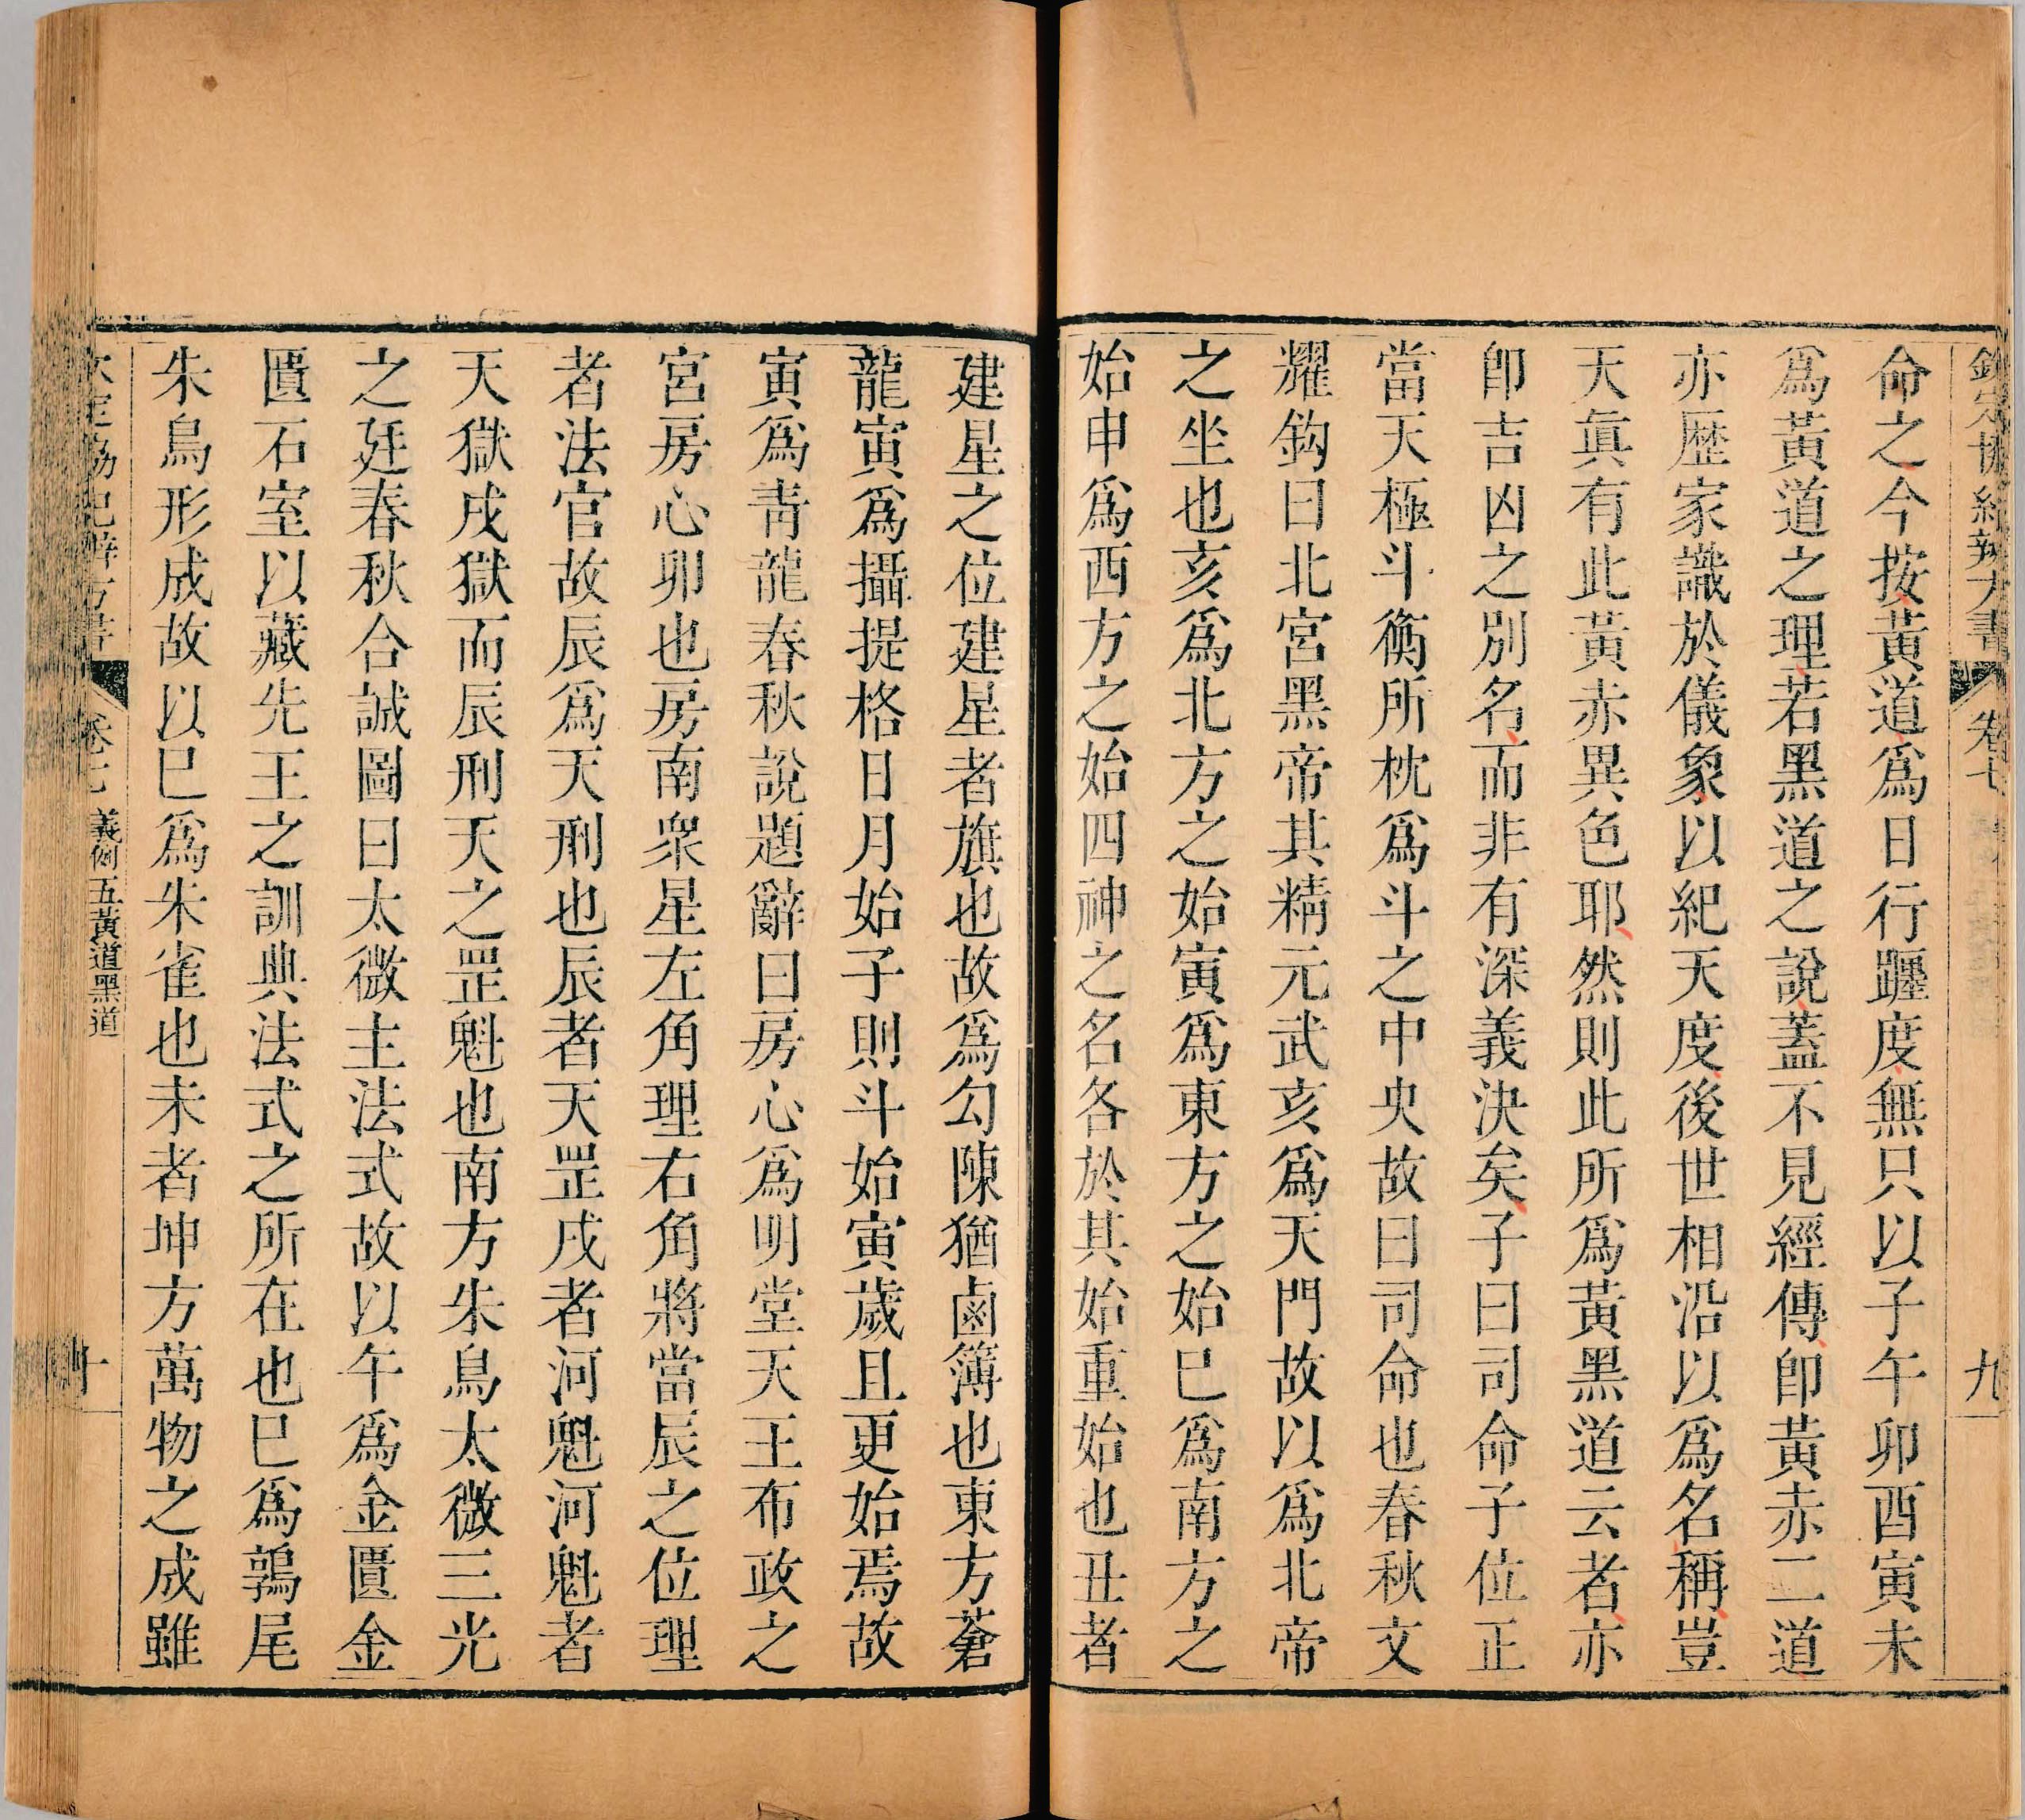 欽定協紀辨方書 卷七 九
命之今按黃道爲日行躔度無只以子午卯酉寅未
爲黃道之理若黑道之說蓋不見經傳卽黃赤二道
亦歷家識於儀象以紀天度後世相沿以爲名稱豈
天眞有此黃赤異色耶然則此所爲黃黑道云者亦
卽吉凶之別名而非有深義決矣子曰司命子位正
當天極斗衡所枕爲斗之中央故曰司命也春秋文
耀鈎曰北宮黑帝其精元武亥爲天門故以爲北帝
之坐也亥爲北方之始寅爲東方之始巳爲南方之
始申爲西方之始四神之名各於其始重始也丑者
建星之位建星者旗也故爲勾陳猶鹵簿也東方蒼
龍寅爲攝提格日月始子則斗始寅歲且更始焉故
寅爲青龍春秋說題辭曰房心爲明堂天王布政之
宮房心卯也房南衆星左角理右角將當辰之位理
者法官故辰爲天刑也辰者天罡戌者河魁河魁者
天獄戌獄而辰刑天之罡魁也南方朱鳥太微三光
之廷春秋合誠圖曰太微主法式故以午爲金匱金
匱石室以藏先王之訓典法式之所在也巳爲鶉尾
朱鳥形成故以巳爲朱雀也未者坤方萬物之成雖
欽定協紀辨方書 卷七 義例五黃道黑道 十